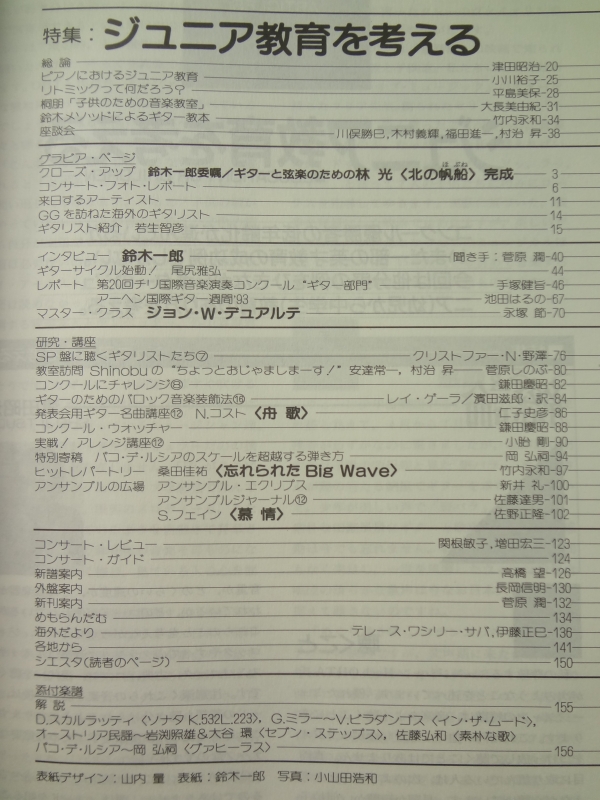 特集：ジュニア教育を考える
総論 津田昭治-20
ピアノにおけるジュニア教育 小川裕子-25
リトミックって何だろう？ 平島美保-28
桐朋「子供のための音楽教室」 大長美由紀-31
鈴木メソッドによるギター教本 竹内永和-34
座談会 川俣勝巳，木村義輝，福田進一，村治 昇-38
グラビア・ページ
クローズ・アップ 鈴木一郎委嘱／ギターと弦楽のための林 光〈北の帆船〉完成 3
コンサート・フォト・レポート 6
来日するアーティスト 11
GGを訪ねた海外のギタリスト 14
ギタリスト紹介 若生智彦 15
インタビュー 鈴木一郎 聞き手：菅原 潤-40
ギターサイクル始動！ 尾尻雅弘 44
レポート 第20回チリ国際音楽演奏コンクール“ギター部門” 手塚健旨-46
アーヘン国際ギター週間'93 池田はるの-67
マスター・クラス ジョン・W・デュアルテ 永塚 節-70
研究・講座
SP盤に聴くギタリストたち⑦ クリストファー・N・野澤-76
教室訪問 Shinobuの“ちょっとおじゃましまーす！”安達常一，村治 昇 菅原しのぶ-80
コンクールにチャレンジ⑧ 鎌田慶昭-82
ギターのためのバロック音楽装飾法⑯ レイ・ゲーラ／濱田滋郎・訳-84
発表会用ギター名曲講座⑫ N.コスト〈舟 歌〉 仁子史彦-86
コンクール・ウォッチャー 鎌田慶昭-88
実戦！ アレンジ講座⑫ 小胎 剛-90
特別寄稿 パコ・デ・ルシアのスケールを超越する弾き方 岡 弘祠-94
ヒットレパートリー 桑田佳祐〈忘れられたBig Wave〉 竹内永和-97
アンサンブルの広場 アンサンブル・エクリプス 新井 礼-100
アンサンブルジャーナル⑫ 佐藤達男-101
S.フェイン〈慕 情〉 佐野正隆-102
コンサート・レビュー 関根敏子，増田宏三-123
コンサート・ガイド 124
新譜案内 高橋 望-126
外盤案内 長岡信明-130
新刊案内 菅原 潤-132
めもらんだむ 134
海外だより テレース・ワシリー・サバ，伊藤正巳-136
各地から 141
シエスタ(読者のページ) 150
添付楽譜
解 説 155
D.スカルラッティ〈ソナタ K.532L.223〉，G.ミラー～V.ビラダンゴス〈イン・ザ・ムード〉，
オーストリア民謡～岩渕照雄＆大谷 環〈セブン・ステップス〉，佐藤弘和〈素朴な歌〉
パコ・デ・ルシア～岡 弘祠〈グァヒーラス〉 156
表紙デザイン：山内 量 表紙：鈴木一郎 写真：小山田浩和